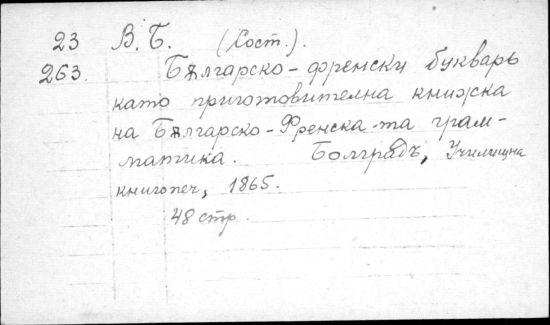 23 В. Б. (Сост.).
263. Бѫлгарско-френски букварь
като приготовителна книжка
на Бѫлгарско-Френска-та грам-
матика. Болградъ, Училищна
книгопеч, 1865.
48 стр.